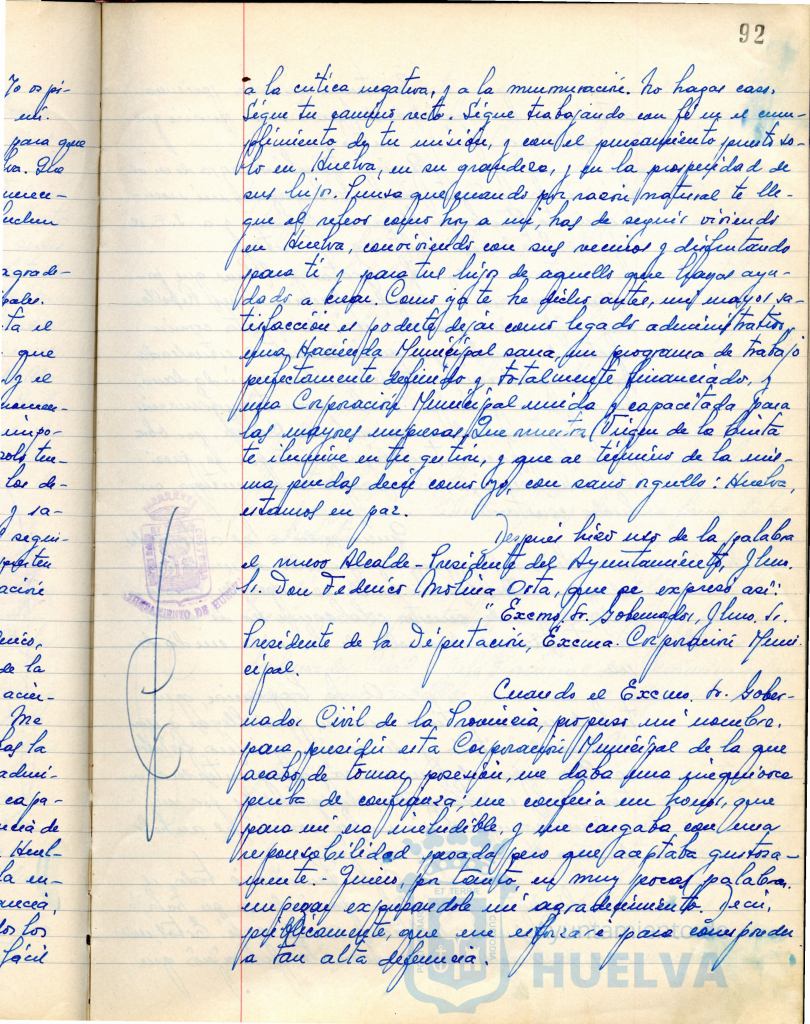 92
a la crítica negativa, y a la murmuración. No hagas caso.
Sigue tu camino recto. Sigue trabajando con fé en el cum-
plimiento de tu misión, y con el pensamiento puesto so-
lo en Huelva, en su grandeza, y en la prosperidad de
sus hijos. Piensa que cuando por razón natural te lle-
gue el relevo como hoy a mi, has de seguir viviendo
en Huelva, conviviendo con sus vecinos y disfrutando
para ti y para tus hijos de aquello que hayas ayu-
dado a crear. Como ya te he dicho antes, mi mayor sa-
tisfacción es poderte dejar como legado administrativo,
una Hacienda Municipal sana, un programa de trabajo
perfectamente definido y totalmente financiado, y
una Corporación Municipal unida y capacitada para
las mayores empresas. Que nuestra Virgen de la Cinta
te ilumine en tu gestión, y que al término de la mis-
ma, puedas decir como yo, con sano orgullo: Huelva,
estamos en paz.
Después hizo uso de la palabra
el nuevo Alcalde-Presidente del Ayuntamiento, Ilmo.
Sr. Don Federico Molina Orta, que se expresó así:
"Excmo. Sr. Gobernador, Ilmo. Sr.
Presidente de la Diputación, Excma. Corporación Muni-
cipal.
Cuando el Excmo. Sr. Gober-
nador Civil de la Provincia, propuso mi nombre,
para presidir esta Corporación Municipal de la que
acabo de tomar posesión, me daba una inequívoca
prueba de confianza; me confería un honor, que
para mi era ineludible, y me cargaba con una
responsabilidad pesada pero que aceptaba gustosa-
mente.- Quiero, por tanto, en muy pocas palabras,
empezar expresandole mi agradecimiento. Decir,
públicamente, que me esforzaré para corresponder
a tan alta deferencia.
Yo os pi-
mi.
para que
lva. Gra
merece-
agrade-
pales.
ta el
que
y el
impo-
los de-
y sa-
segui-
ación
de la
Me
la
admi-
capa-
Huel-
la en-
los
fácil
AYUNTAMIENTO DE HUELVA
Ayuntamiento
HUELVA